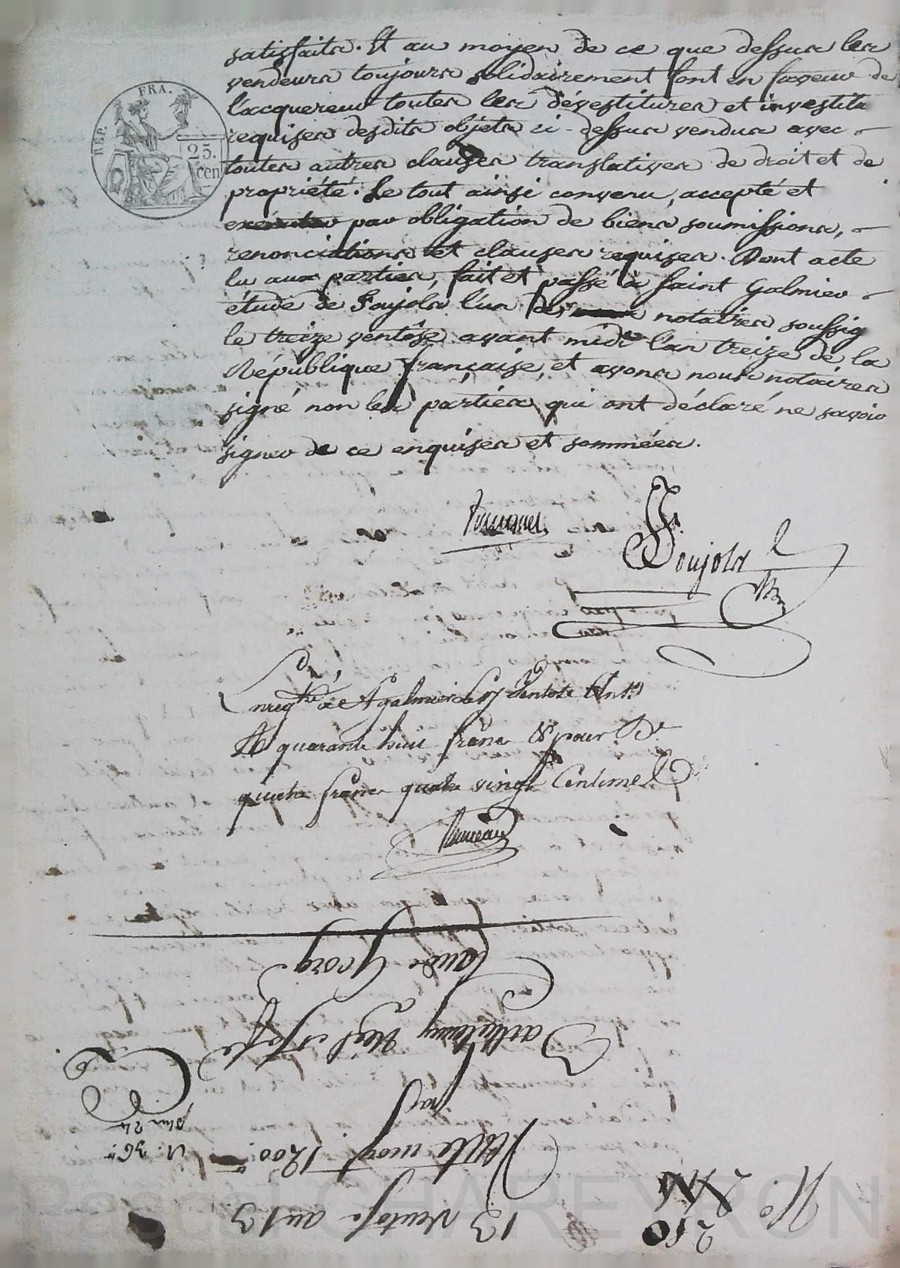 REP. FRA.
25.
cen
satisfaits. Et au moyen de ce que dessus les
vendeurs toujours solidairement font en faveur de
l'acquereur toutes les dévestitures et investits
requises desdits objets ci-dessus vendus avec
toutes autres clauses translatives de droit et de
propriété. Le tout ainsi convenu, accepté et
par obligation de biens soumissions,
renonciations et clauses requises. Dont acte
lu aux parties, fait et passé à Saint Galmier
étude de Poujols l'un des notaires soussig
le treize ventôse avant midi l'an treize de la
République française, et avons nous notaires
signé non les parties qui ont déclaré ne savoir
signer de ce enquises et sommées.
Poujols
Enregtré à St galmier le 17 Ventose
quarante huit francs pour
quatre francs quatre vingt Centimes
13 Ventose an 13.
Vente 1200
par
Barthelemy
à
Claude
N.o
210